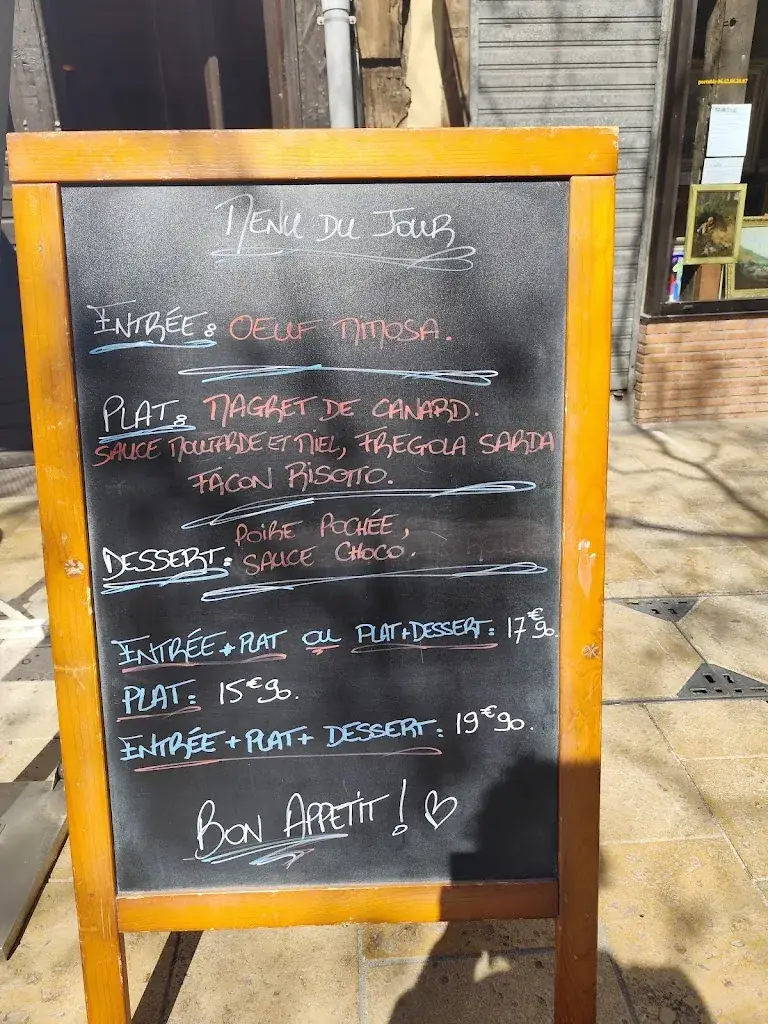 MENU DU JOUR
ENTRÉE: OEUF MIMOSA.
PLAT: MAGRET DE CANARD.
SAUCE MOUTARDE ET MIEL, FREGOLA SARDA
FACON RISOTTO.
POIRE POCHÉE,
DESSERT: SAUCE CHOCO.
ENTRÉE + PLAT OU PLAT + DESSERT: 17€90.
PLAT: 15€90.
ENTRÉE + PLAT + DESSERT: 19€90.
BON APPETIT! ♡